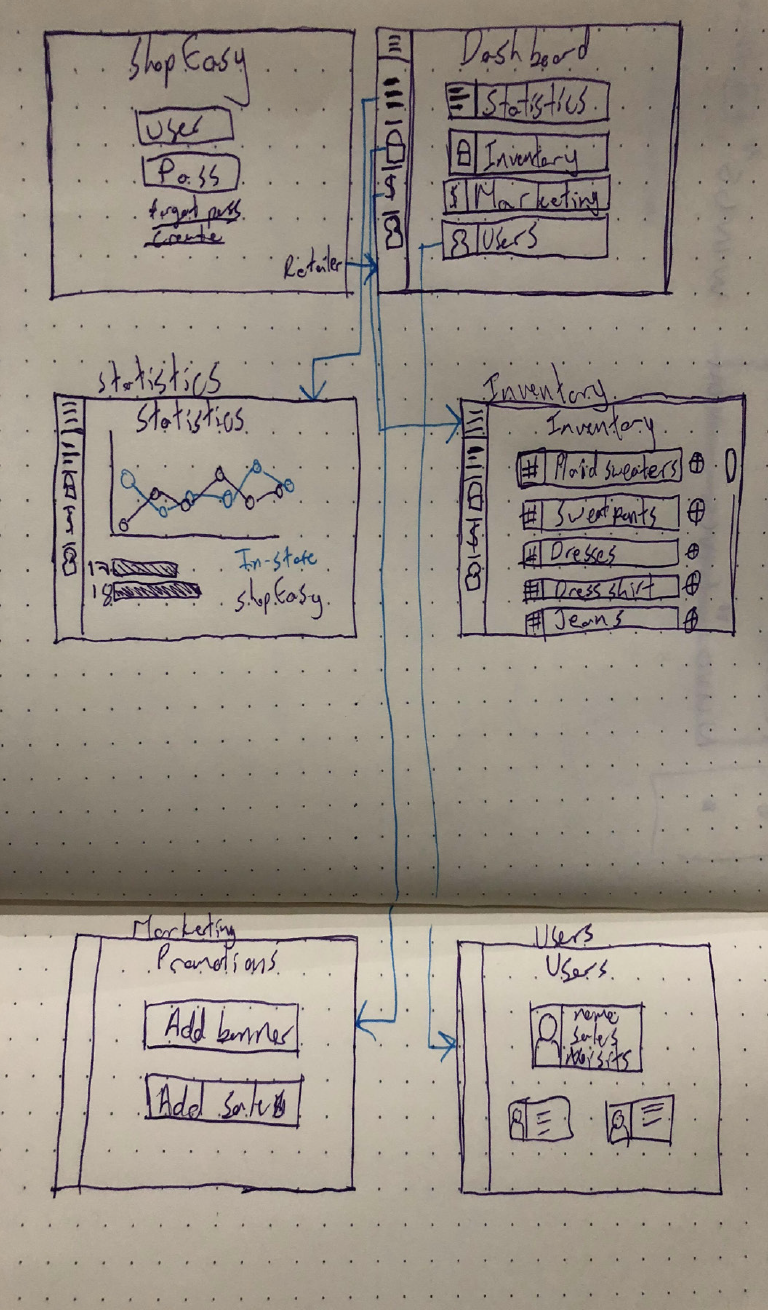 ShopEasy
User
Pass
forgot pass
create
Retailer
Dashboard
Statistics
Inventory
$ Marketing
Users
$
Statistics
Statistics
17
18
In-state
ShopEasy
$
Inventory
Inventory
# Plaid sweaters
# Sweatpants
# Dresses
# Dress shirt
# Jeans
$
Marketing
Promotions
Add banner
Add sales
Users
Users
name
sales
visits